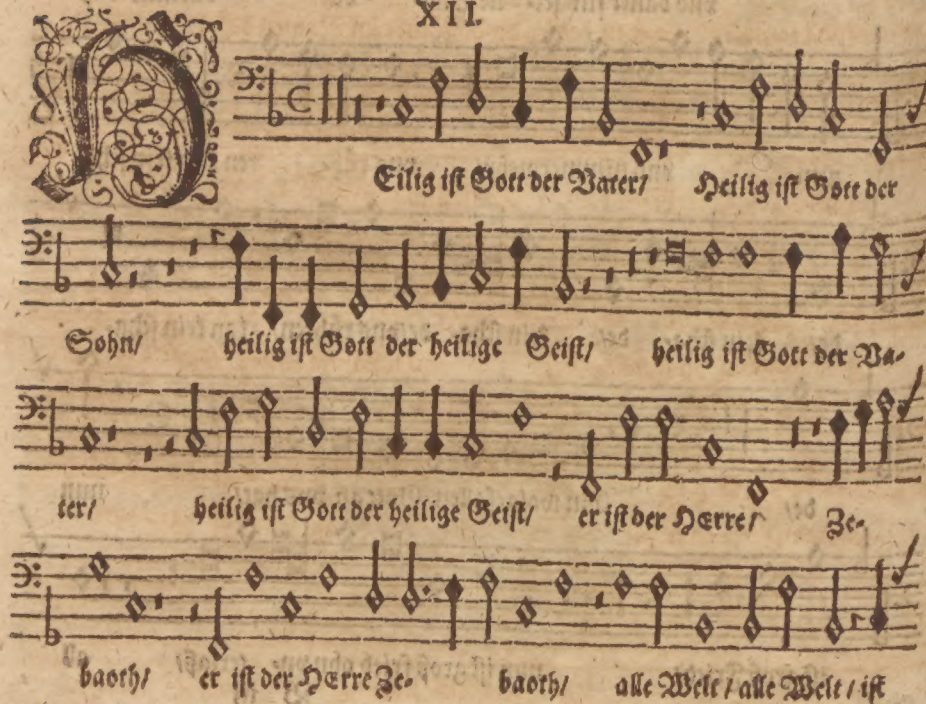 XII.
HEilig ist Gott der Vater/ Heilig ist Gott der
Sohn/ heilig ist Gott der heilige Geist/ heilig ist Gott der Va-
ter/ heilig ist Gott der heilige Geist/ er ist der HErre/ Ze-
baoth/ er ist der HErre Ze- baoth/ alle Welt / alle Welt / ist